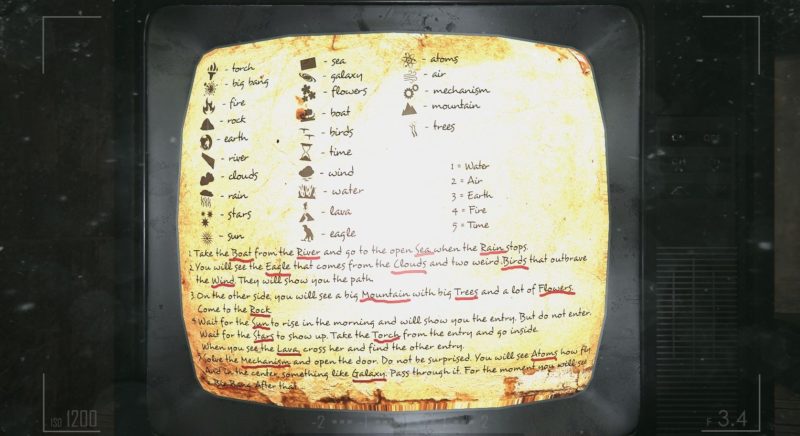 - torch
- big bang
- fire
- rock
- earth
- river
- clouds
- rain
- stars
- sun
- sea
- galaxy
- flowers
- boat
- birds
- time
- wind
- water
- lava
- eagle
- atoms
- air
- mechanism
- mountain
- trees
1 = Water
2 = Air
3 = Earth
4 = Fire
5 = Time
1. Take the Boat from the River and go to the open Sea when the Rain stops.
2. You will see the Eagle that comes from the Clouds and two weird Birds that outbrave
the Wind. They will show you the path.
3. On the other side, you will see a big Mountain with big Trees and a lot of Flowers.
Come to the Rock
4. Wait for the Sun to rise in the morning and will show you the entry. But do not enter.
Wait for the Stars to show up. Take the Torch from the entry and go inside.
When you see the Lava, cross her and find the other entry.
5. Solve the Mechanism and open the door. Do not be surprised. You will see Atoms how fly
And in the center, something like Galaxy. Pass through it. For the moment you will see
Big Bang. After that
ISO 1200
-2
2
F 3.4